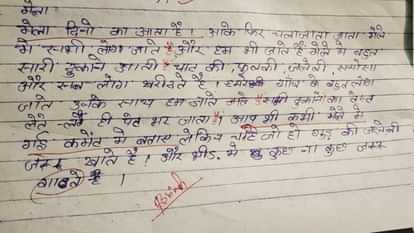 मेला
मेला दिनो का आता है आके फिर चलाजाता जाता मेले
मे सभी लोग जाते है और हम भी जाते है मेले मे बहुत
सारी दुकाने आती चाट की, फुलकी, जलेबी, समोसा
और सब लोग खरीदते है। हमारे गाँव के बहुत लोग
जाते उनके साथ हम जाते
लेते ही पेट भर जाता है। आप भी कभी मेले मे
गई कमेंट मे बताय लेकिन चाहे जो हो गुड़ की जलेबी
जरूर खाते है। और भीड. मे कुछ ना कुछ जरूर
है।